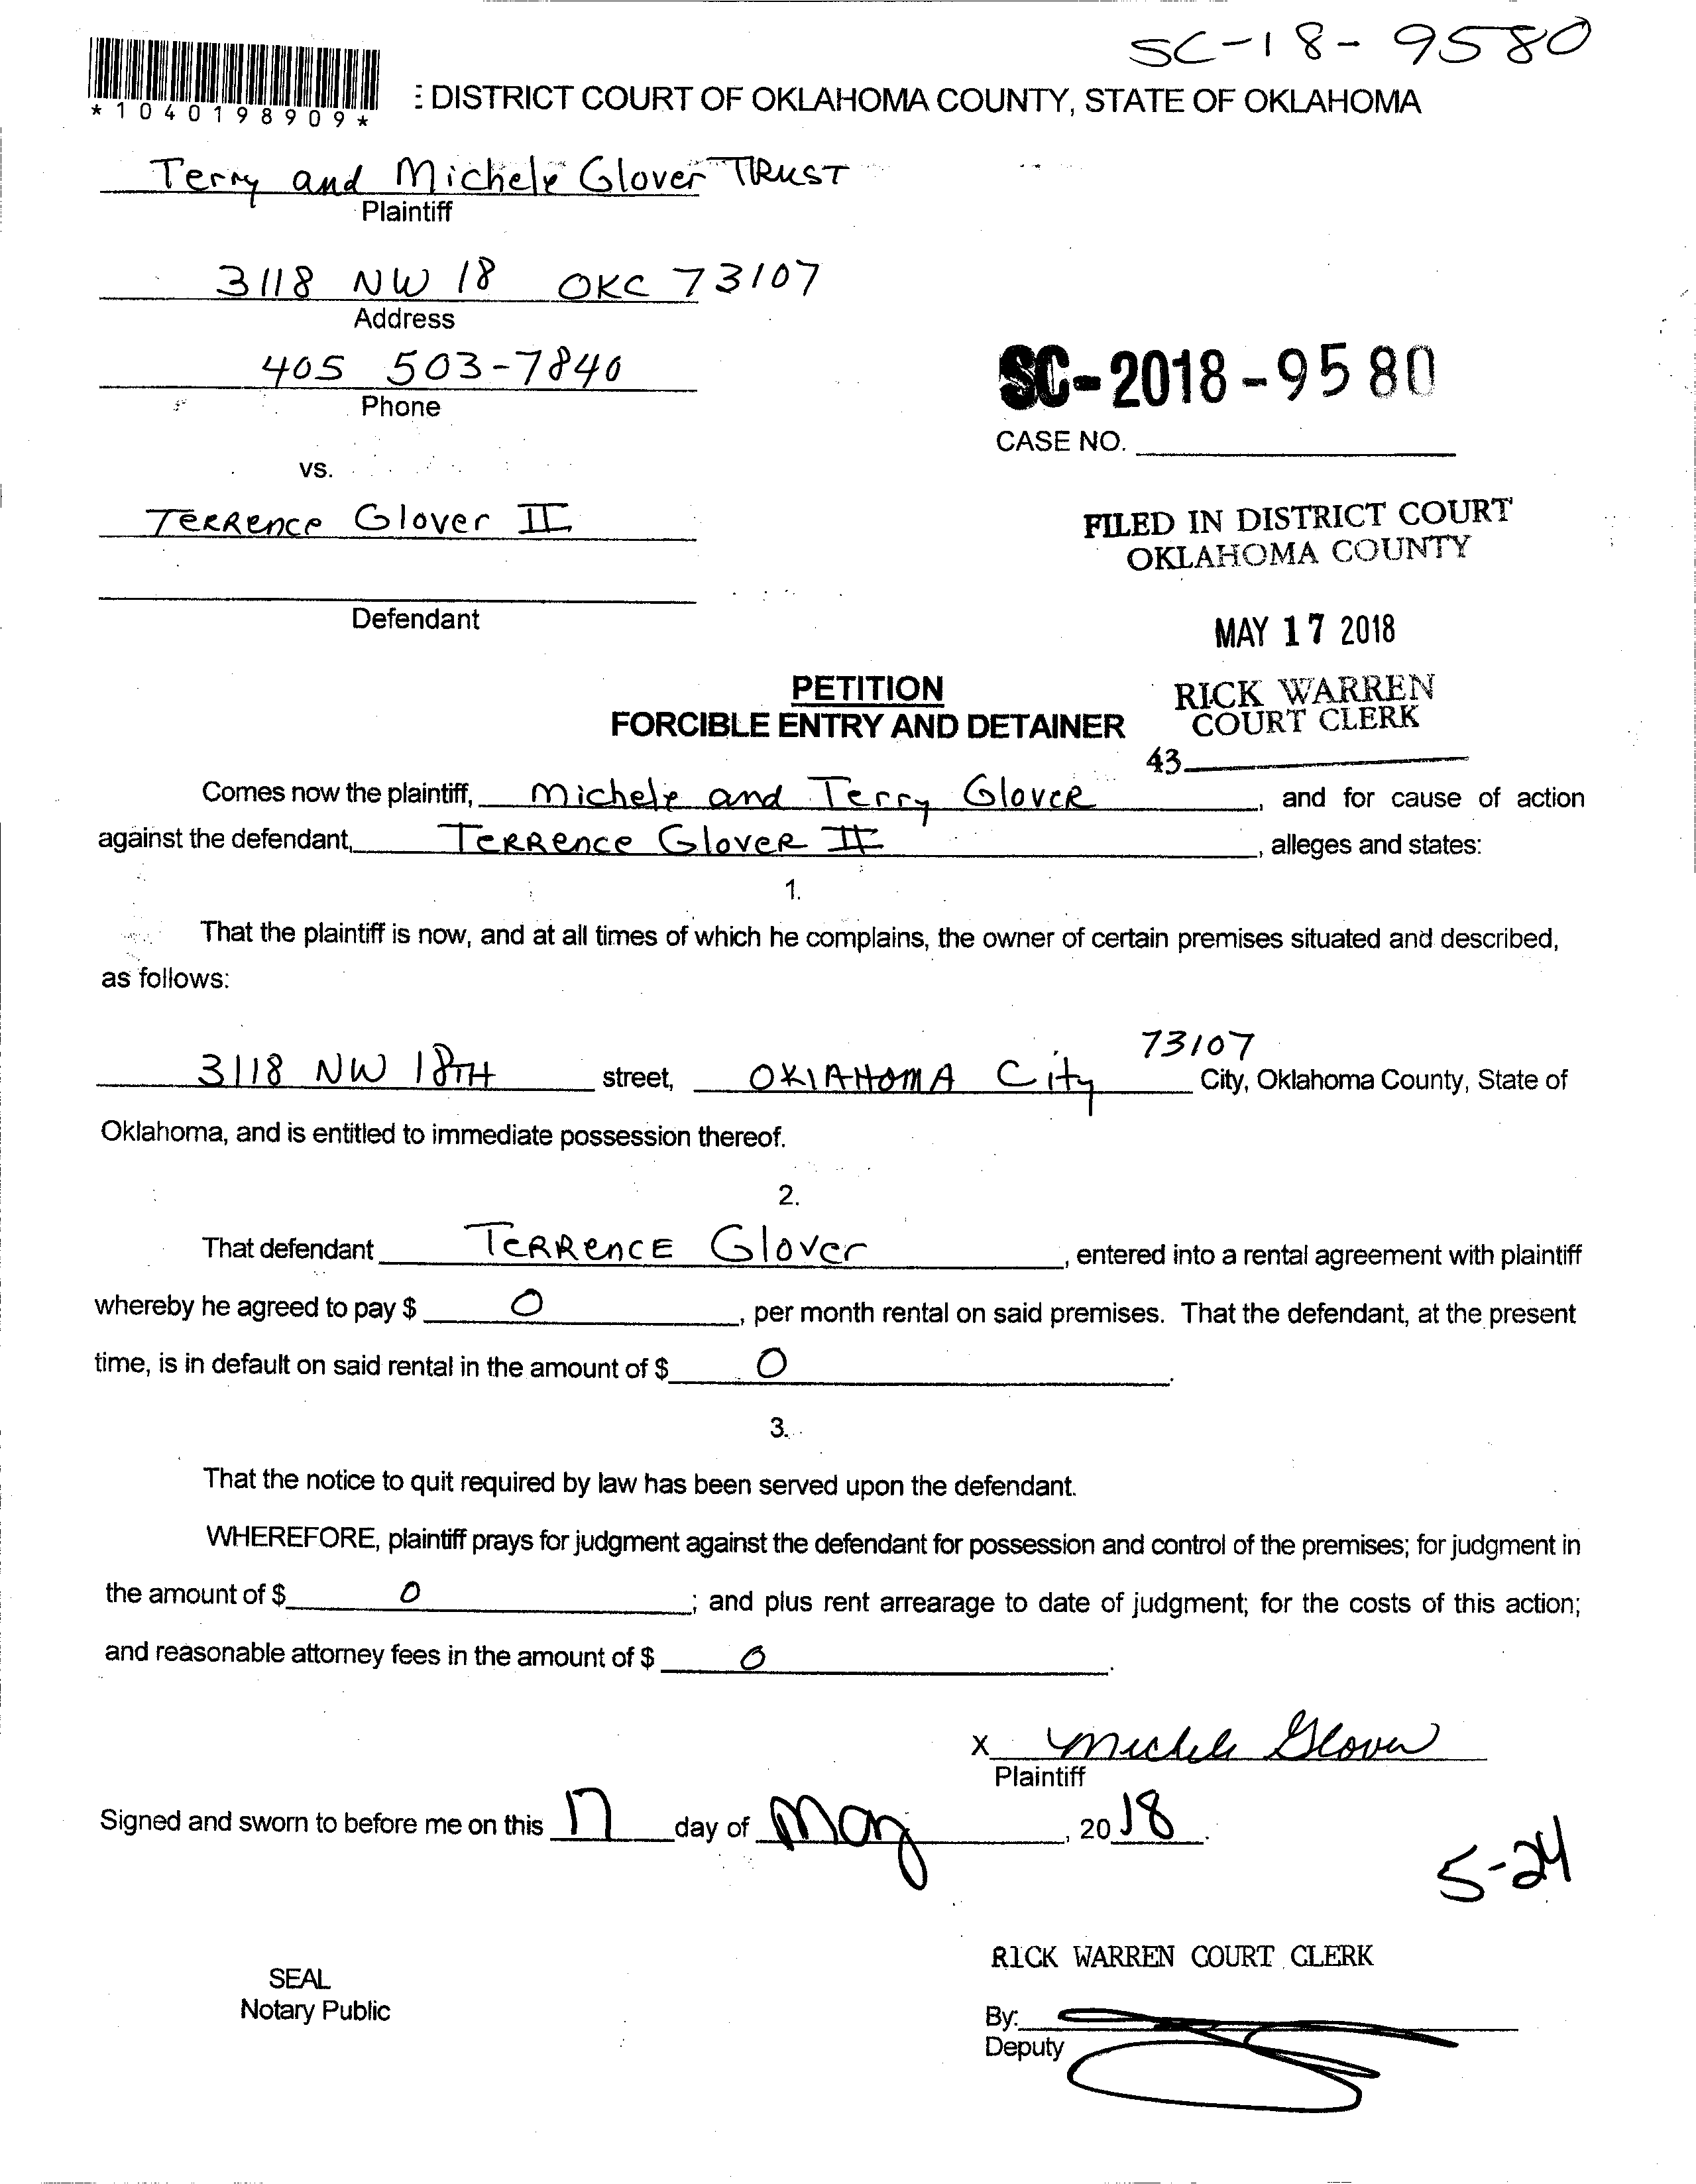 SC-18-9580
*1040198909*
: DISTRICT COURT OF OKLAHOMA COUNTY, STATE OF OKLAHOMA
Terry and Michele Glover TRUST
Plaintiff
3118 NW 18 OKC 73107
Address
405 503-7840
Phone
SC-2018-9580
CASE NO.
vs.
TERRence Glover II
FILED IN DISTRICT COURT
OKLAHOMA COUNTY
Defendant
MAY 17 2018
PETITION
RICK WARREN
FORCIBLE ENTRY AND DETAINER
COURT CLERK
43
Comes now the plaintiff, Michele and Terry GloveR, and for cause of action
against the defendant, TeRRence GloveR II, alleges and states:
1.
That the plaintiff is now, and at all times of which he complains, the owner of certain premises situated and described,
as follows:
73107
3118 NW 18TH street, OKlAHOMA City City, Oklahoma County, State of
Oklahoma, and is entitled to immediate possession thereof.
2.
That defendant TeRRencE Glover, entered into a rental agreement with plaintiff
whereby he agreed to pay $ 0, per month rental on said premises. That the defendant, at the present
time, is in default on said rental in the amount of $ 0.
3.
That the notice to quit required by law has been served upon the defendant.
WHEREFORE, plaintiff prays for judgment against the defendant for possession and control of the premises; for judgment in
the amount of $ 0; and plus rent arrearage to date of judgment; for the costs of this action;
and reasonable attorney fees in the amount of $ 0.
X Michele Glover
Plaintiff
Signed and sworn to before me on this 17 day of May, 2018.
5-24
RICK WARREN COURT CLERK
SEAL
Notary Public
By:
Deputy